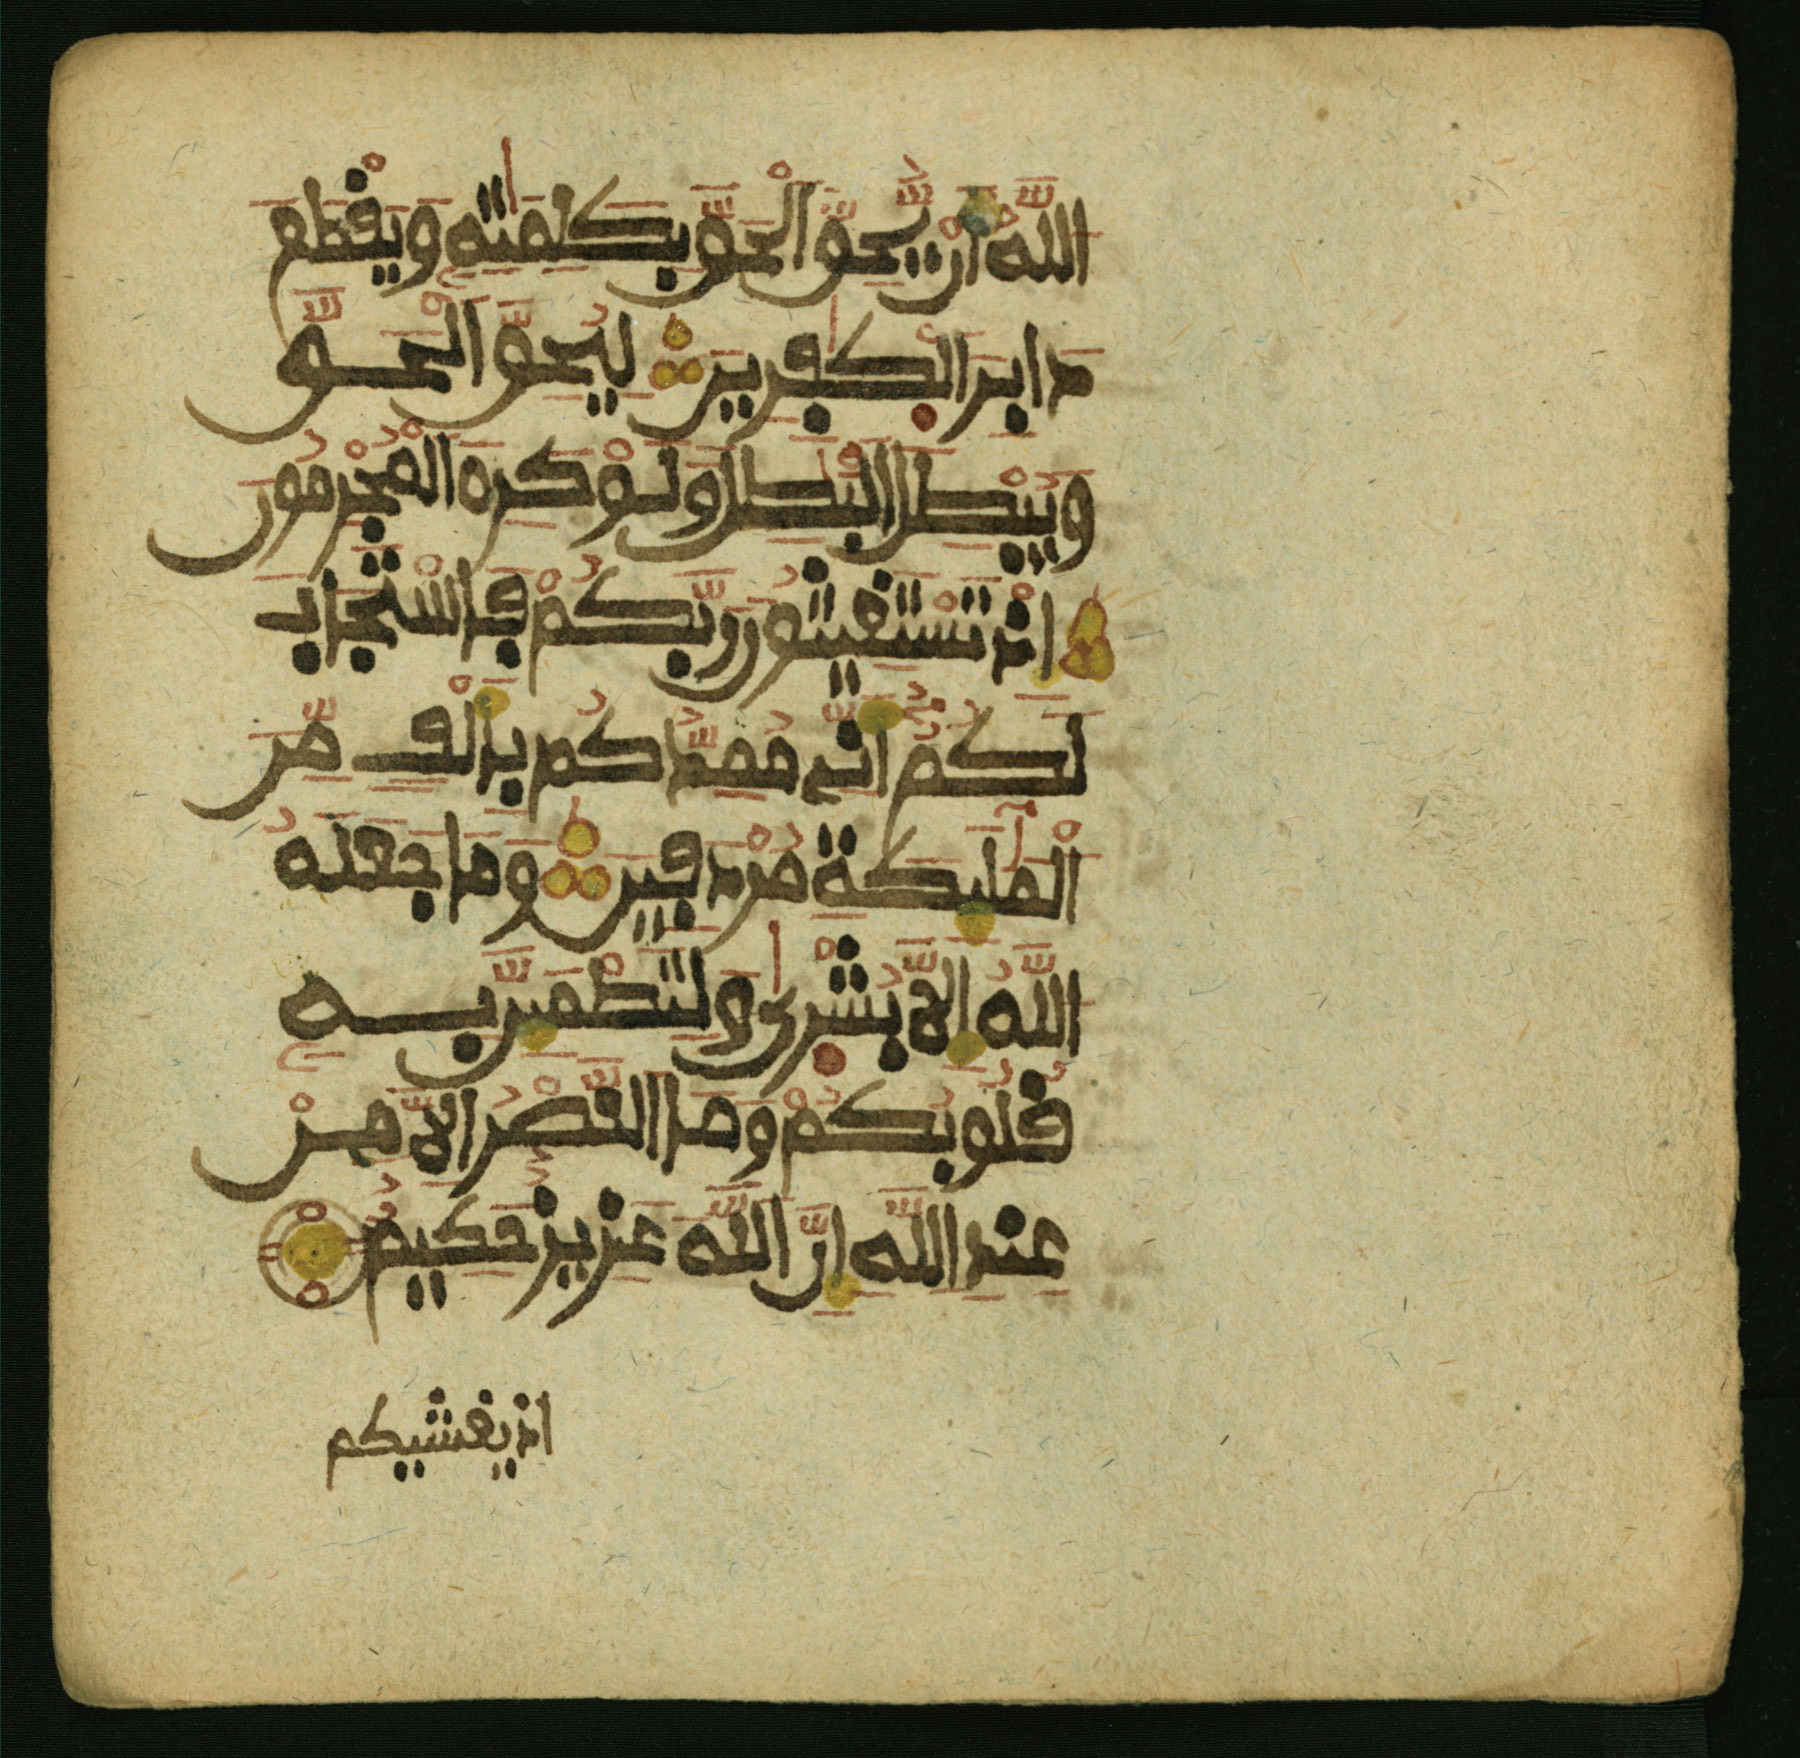 اللَّهُ أَنْ يُّحِقَّ الْحَقَّ بِكَلِمَٰتِهِ وَيَقْطَعَ
دَابِرَ الْكَٰفِرِينَ لِيُحِقَّ الْحَقَّ
وَيُبْطِلَ الْبَٰطِلَ وَلَوْ كَرِهَ الْمُجْرِمُونَ
إِذْ تَسْتَغِيثُونَ رَبَّكُمْ فَاسْتَجَابَ
لَكُمُ أَنِّي مُمِدُّكُم بِأَلْفٍ مِّنَ
الْمَلَٰٓئِكَةِ مُرْدَفِينَ وَمَا جَعَلَهُ
اللَّهُ إِلَّا بُشْرَىٰ وَلِتَطْمَئِنَّ بِهِ
قُلُوبُكُمْ وَمَا النَّصْرُ إِلَّا مِنْ
عِندِ اللَّهِ إِنَّ اللَّهَ عَزِيزٌ حَكِيمٌ
اذ يغشيكم